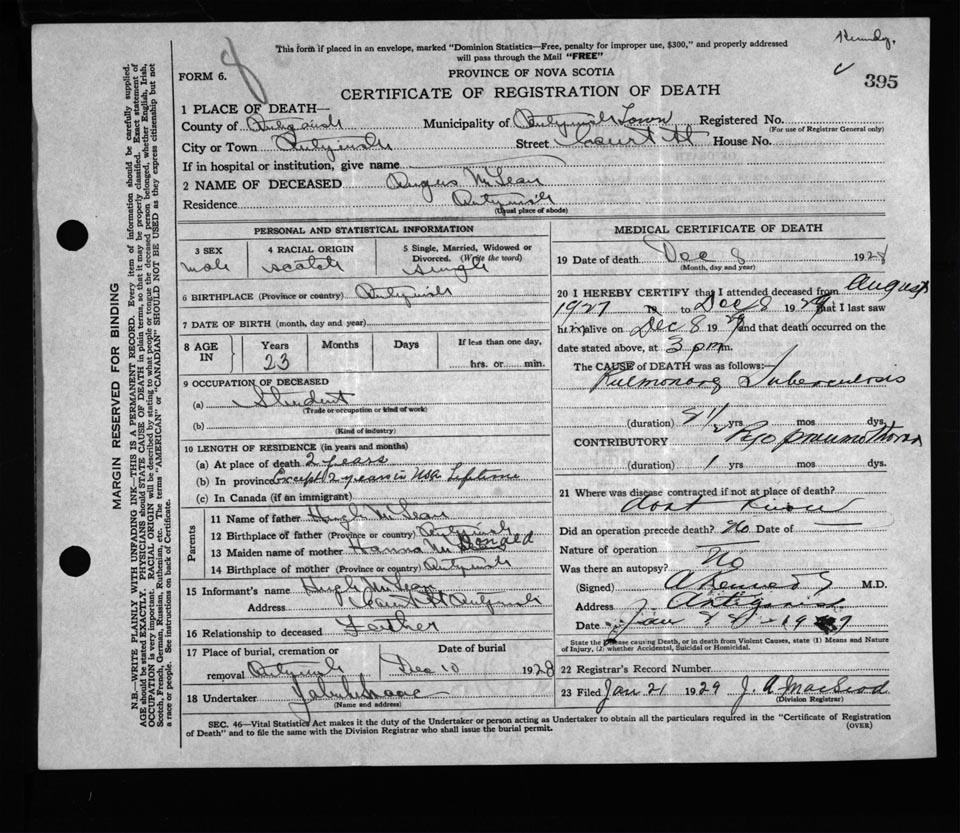 This form if placed in an envelope, marked "Dominion Statistics—Free, penalty for improper use, $300," and properly addressed
will pass through the Mail "FREE"
FORM 6.
PROVINCE OF NOVA SCOTIA
395
CERTIFICATE OF REGISTRATION OF DEATH
MARGIN RESERVED FOR BINDING
N.B.—WRITE PLAINLY WITH UNFADING INK—THIS IS A PERMANENT RECORD. Every item of information should be carefully supplied.
AGE should be stated EXACTLY. PHYSICIANS should STATE CAUSE OF DEATH in plain terms, so that it may be properly classified. Exact statement of
OCCUPATION is very important. RACIAL ORIGIN will be described by stating to what people or tongue the deceased person belonged, whether English, Irish,
Scotch, French, German, Russian, Ruthenian, etc. The terms "AMERICAN" or "CANADIAN" SHOULD NOT BE USED as they express citizenship but not
a race or people. See instructions on back of Certificate.
1 PLACE OF DEATH—
County of Antigonish Municipality of Antigonish Town Registered No.
(For use of Registrar General only)
City or Town Antigonish Street Court St House No.
If in hospital or institution, give name
2 NAME OF DECEASED Angus McLean
Residence Antigonish
(Usual place of abode)
PERSONAL AND STATISTICAL INFORMATION
3 SEX male
4 RACIAL ORIGIN scotch
5 Single, Married, Widowed or
Divorced. (Write the word)
single
6 BIRTHPLACE (Province or country) Antigonish
7 DATE OF BIRTH (month, day and year)
8 AGE IN Years Months Days If less than one day,
23 hrs. or min.
9 OCCUPATION OF DECEASED
(a) Student
(Trade or occupation or kind of work)
(b)
(Kind of industry)
10 LENGTH OF RESIDENCE (in years and months)
(a) At place of death 2 years
(b) In province Except 2 years in USA Lifetime
(c) In Canada (if an immigrant)
Parents
11 Name of father Hugh McLean
12 Birthplace of father (Province or country) Antigonish
13 Maiden name of mother Hanna McDonald
14 Birthplace of mother (Province or country) Antigonish
15 Informant's name Hugh McLean
Address Court St Antigonish
16 Relationship to deceased Father
17 Place of burial, cremation or
removal Antigonish
Date of burial
Dec 10 1928
18 Undertaker
(Name and address)
MEDICAL CERTIFICATE OF DEATH
19 Date of death Dec 8 1928
(Month, day and year)
20 I HEREBY CERTIFY that I attended deceased from August
1927 to Dec 8 19 that I last saw
him alive on Dec 8 19 and that death occurred on
date stated above, at 3 pm m.
The CAUSE of DEATH was as follows:
Pulmonary Tuberculosis
(duration) yrs mos dys.
CONTRIBUTORY Pyopneumothorax
(duration) 1 yrs mos dys.
21 Where was disease contracted if not at place of death?
dont know
Did an operation precede death? No Date of —
Nature of operation
Was there an autopsy? No
(Signed) M.D.
Address Antigonish
Date Jan
State the Disease causing Death, or in death from Violent Causes, state (1) Means and Nature
of Injury, (2) whether Accidental, Suicidal or Homicidal.
22 Registrar's Record Number
23 Filed Jan 21 1929 J. A. MacLeod
(Division Registrar)
SEC. 46—Vital Statistics Act makes it the duty of the Undertaker or person acting as Undertaker to obtain all the particulars required in the "Certificate of Registration
of Death" and to file the same with the Division Registrar who shall issue the burial permit.
(OVER)